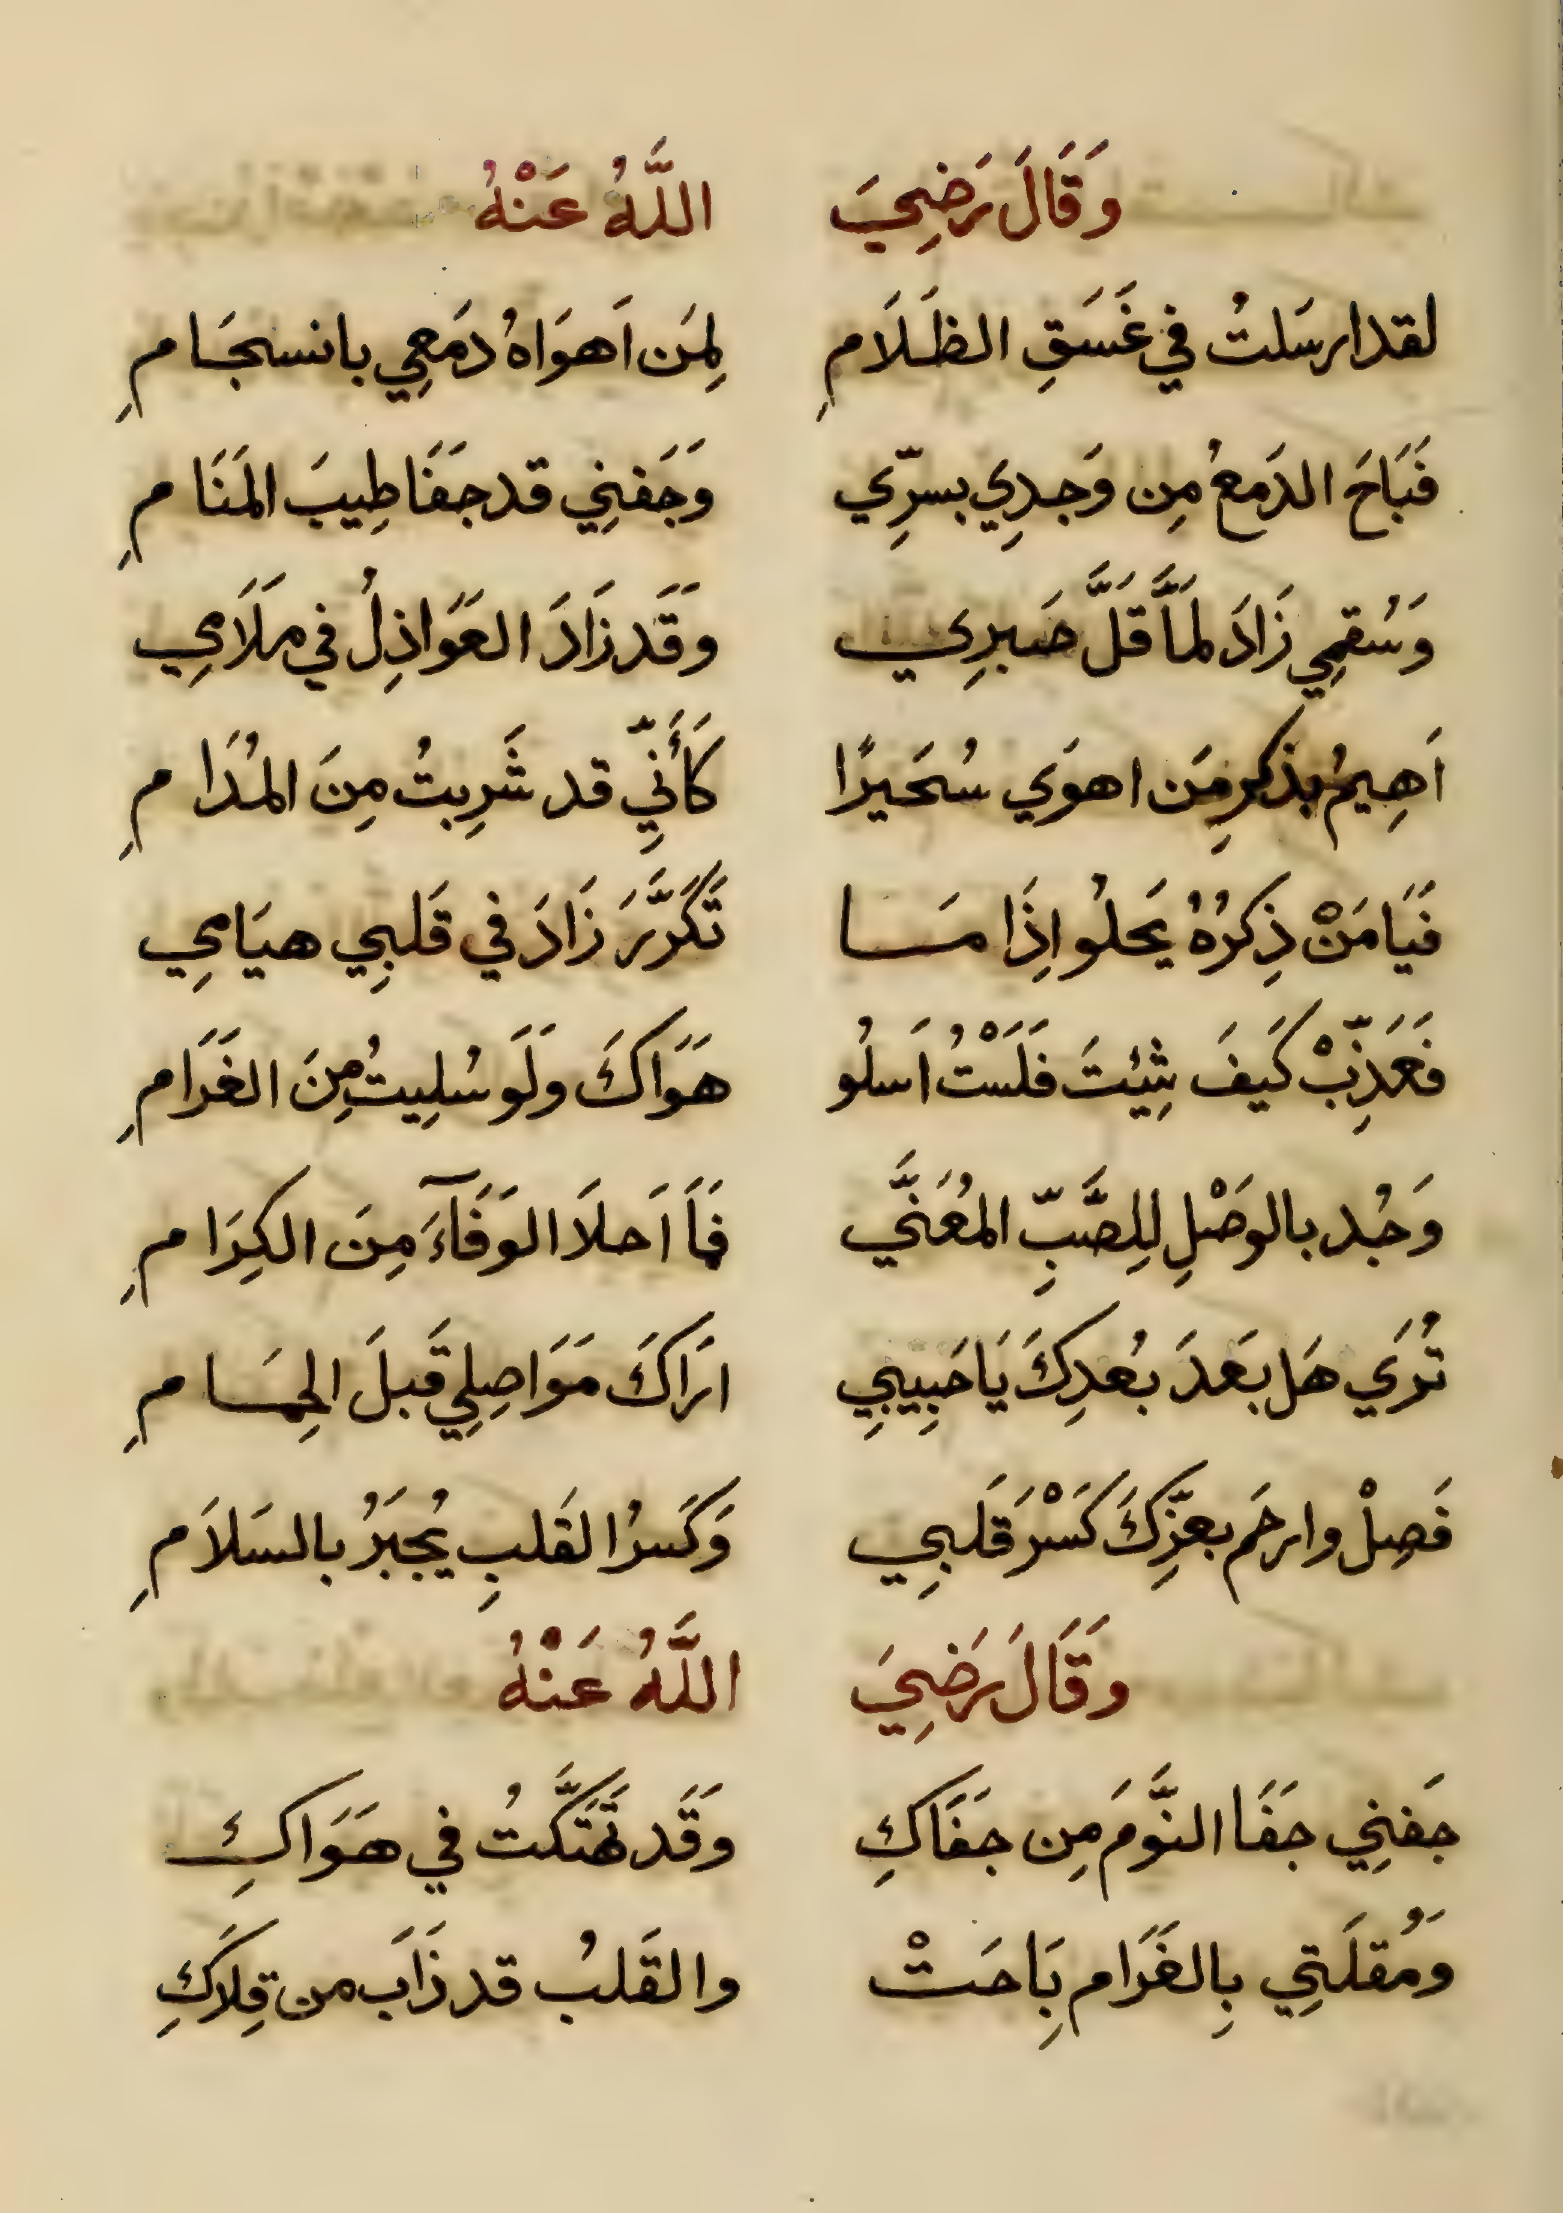 وَقَالَ رَضِيَ اللَّهُ عَنْهُ
لقد ارسَلتُ في غَسَقِ الظَلَامِ لِمَن اَهوَاهُ دَمَعِي بانسجَامِ
فَبَاحَ الدَمعُ مِن وَجدِي بسرِّي وَجَفنِي قد جَفَا طِيبَ المَنَامِ
وَسُقمِي زَادَ لمَّا قَلَّ صَبرِي وَقَد زَادَ العَوَاذِلُ في مَلَامِي
اَهِيمُ بذكرِ مَن اهوَي سُحَيرًا كَأَنِّي قد شَرِبتُ مِنَ المُدَامِ
فَيَا مَنْ ذِكرُهُ يَحلُو اِذَا مَا تَكَرَّرَ زَادَ في قَلبِي هيَامِي
فَعَذِّبْ كَيفَ شِئتَ فَلَسْتُ اَسلُو هَوَاكَ وَلَو سُلِيتُ مِنَ الغَرَامِ
وَجُد بالوَصْلِ لِلصَّبِّ المُعَنَّي فَمَا اَحلَا الوَفَآءَ مِنَ الكِرَامِ
تُرَي هَل بَعَدَ بُعدِكَ يَا حَبِيبِي ارَاكَ مَوَاصِلِي قَبلَ الحِمَامِ
فَصِلْ وارحَم بعزِّكَ كَسْرَ قَلبِي وَكَسرُ القَلبِ يُجبَرُ بالسَلَامِ
وَقَالَ رَضِيَ اللَّهُ عَنْهُ
جَفنِي جَفَا النَّومَ مِن جَفَاكِ وَقَد تَهَتَّكتُ في هَوَاكِ
وَمُقلَتِي بِالغَرَامِ بَاحَتْ والقَلبُ قد ذَابَ من قِلَاكِ